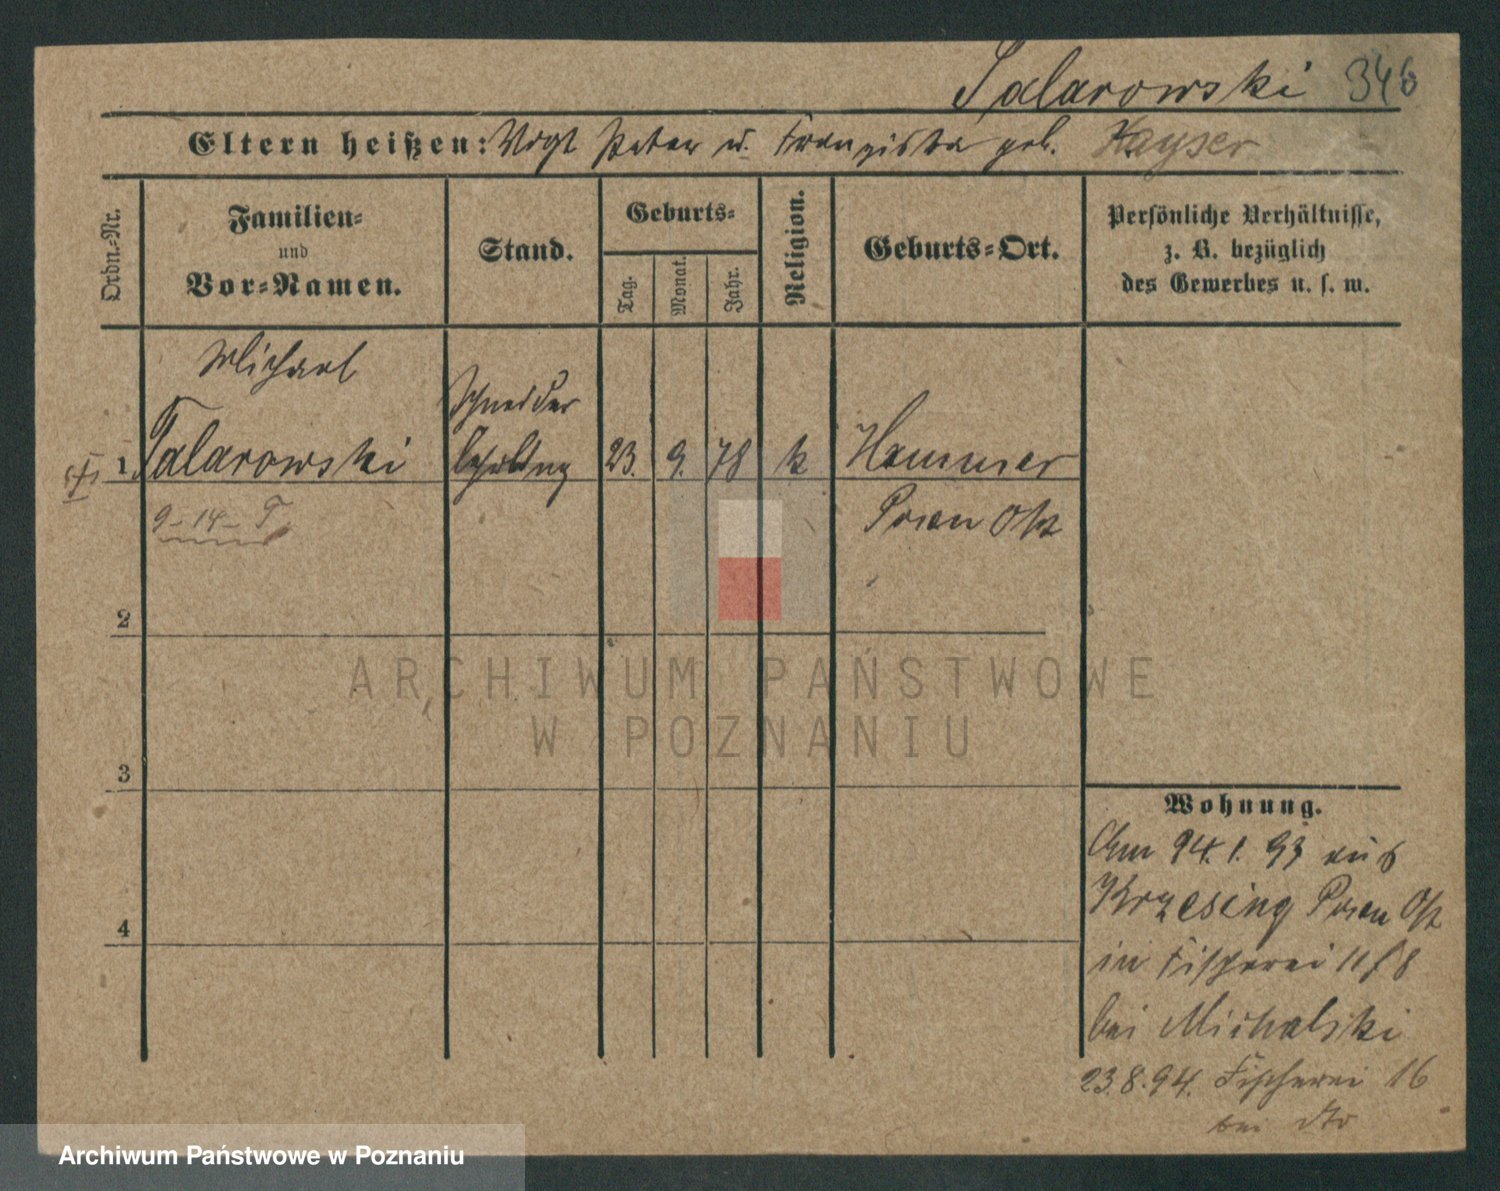 Talarowski 346
Eltern heißen: Vogt Peter u. Franziska geb. Kayser
Ordn.-Nr.
Familien-
und
Vor-Namen.
Stand.
Geburts-
Tag.
Monat.
Jahr.
Religion.
Geburts-Ort.
Persönliche Verhältnisse,
z. B. bezüglich
des Gewerbes u. s. w.
Michael
Schneider
1 Talarowski Lehrling 23. 9. 78 k Hammer
9-14- T
Posen Ost
2
ARCHIWUM PAŃSTWOWE
W POZNANIU
3
Wohnung.
Am 24.1.93 aus
Krzesing Posen Ost
in Fischerei 11/8
4
bei Michalski
23.8.94. Fischerei 16
bei dto
Archiwum Państwowe w Poznaniu